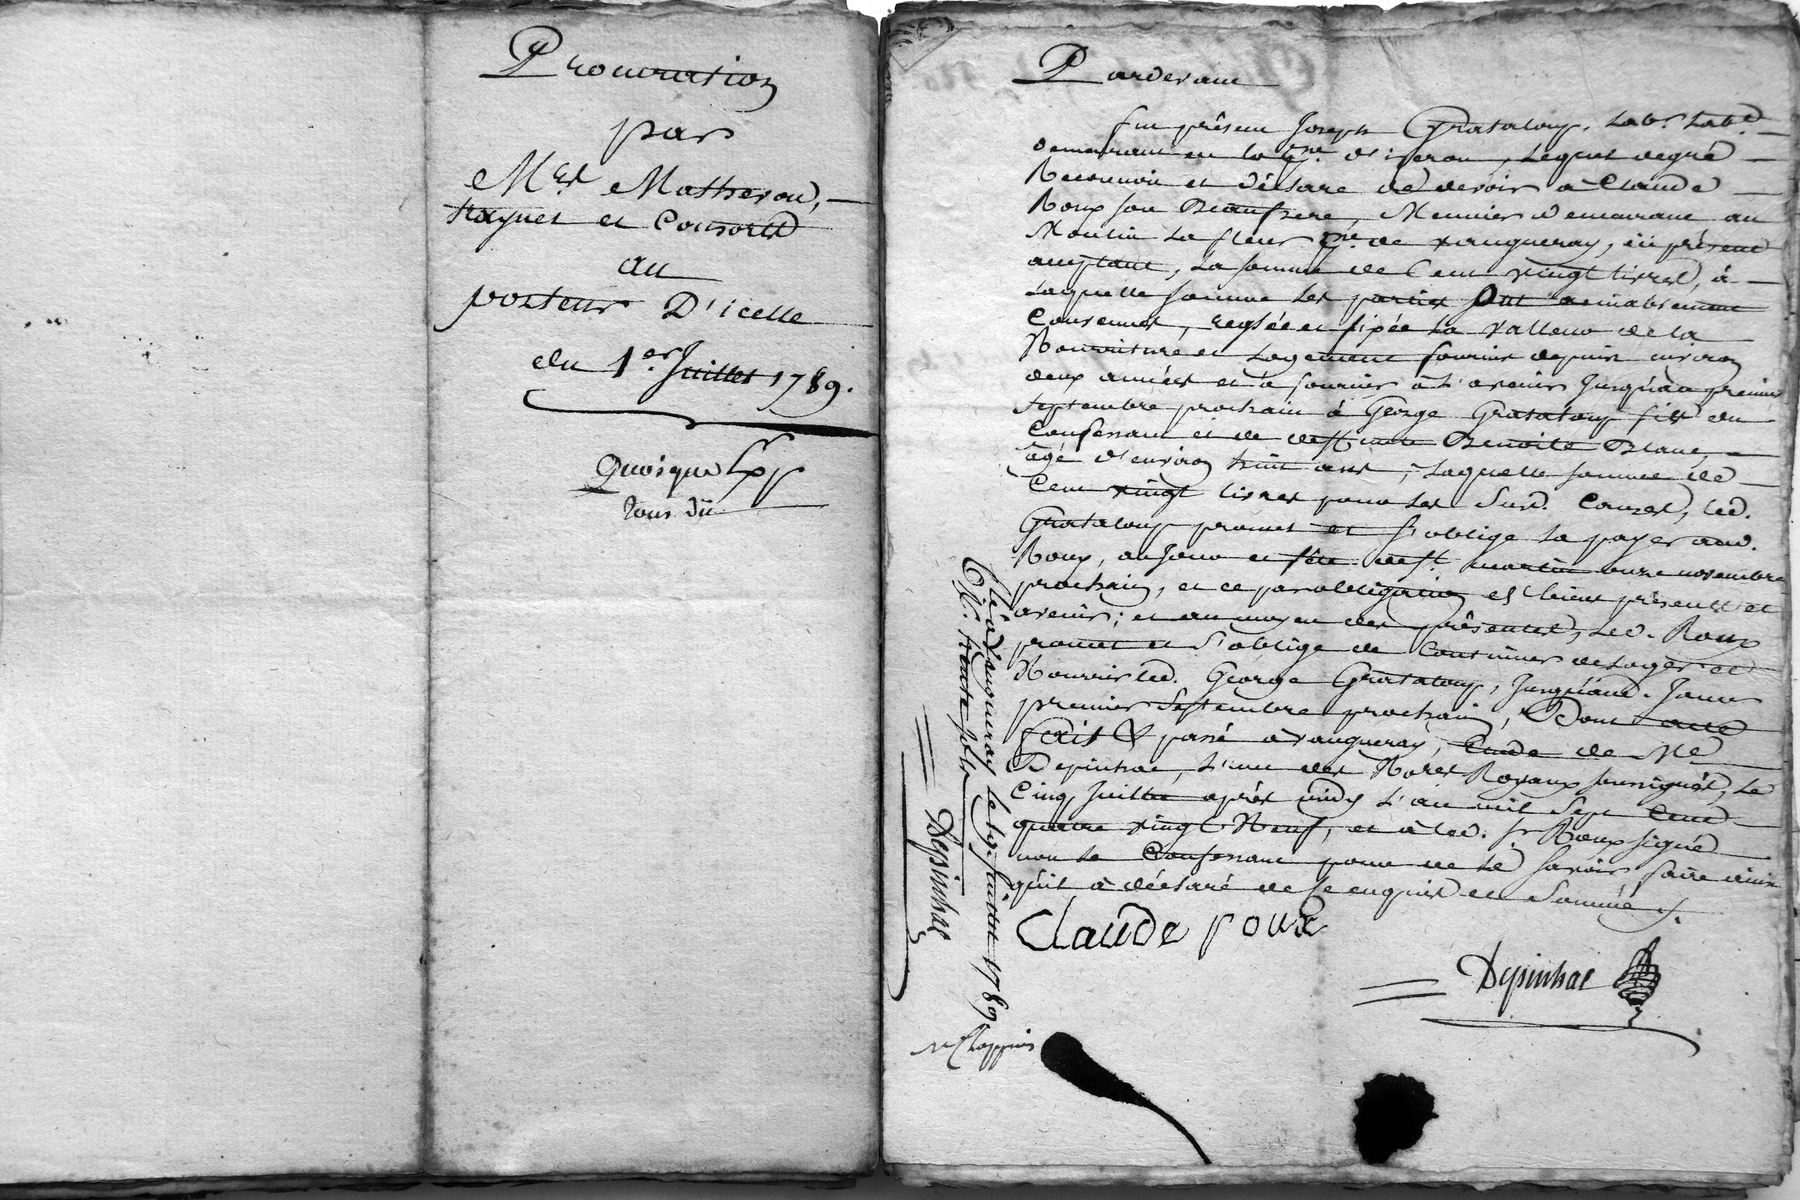 Procuration
par
Mrs Matheron,
et Consorts
au
porteur D'icelle
du 1er Juillet 1789.
Quoique
tous dû
Pardevant
fut présent Joseph Grataloup, Labr.
demeurant en la psse. d'iseron, Lequel de gré
Reconnoit et déclare de devoir à Claude
Roux son Beaufrere, Meunier demeurant au
Moulin La fleur psse. de vaugneray, ici présent
acceptant, La somme de Cent vingt livres, à
laquelle somme les parties ont amiablement
Convenues, reglée et fixée La valleur de la
Nourriture et Logement fournis depuis environ
deux années et à fournir à l'avenir Jusqu'au premier
Septembre prochain à George Grataloup fils du
Confessant et de deffunte Benoite Blanc,
âgé d'environ huit ans, Laquelle somme de
Cent vingt livres pour les Susd. Causes, led.
Grataloup promet et s'oblige La payer aud.
Roux, au Jour et fête de St. martin onze novembre
prochain, et ce par obligation es biens présents et
avenir; et au moyen des présentes, Led. Roux
promet et s'oblige de Continuer de Loger et
Nourrir led. George Grataloup, Jusqu'aud. Jour
premier Septembre prochain, Dont acte
fait & passé à vaugneray, Etude de Me
Depinhac, L'un des Nores Royaux soussignés, Le
Cinq Juillet après midy L'an mil Sept Cent
quatre vingt Neuf, et à led. Sr. Roux signé
non Le Confessant pour ne Le Savoir faire ainsi
qu'il à déclaré de ce enquis et Sommé.
Claude roux
Depinhac
à Vaugneray le Juillet 1789
trente sols
Depinhac